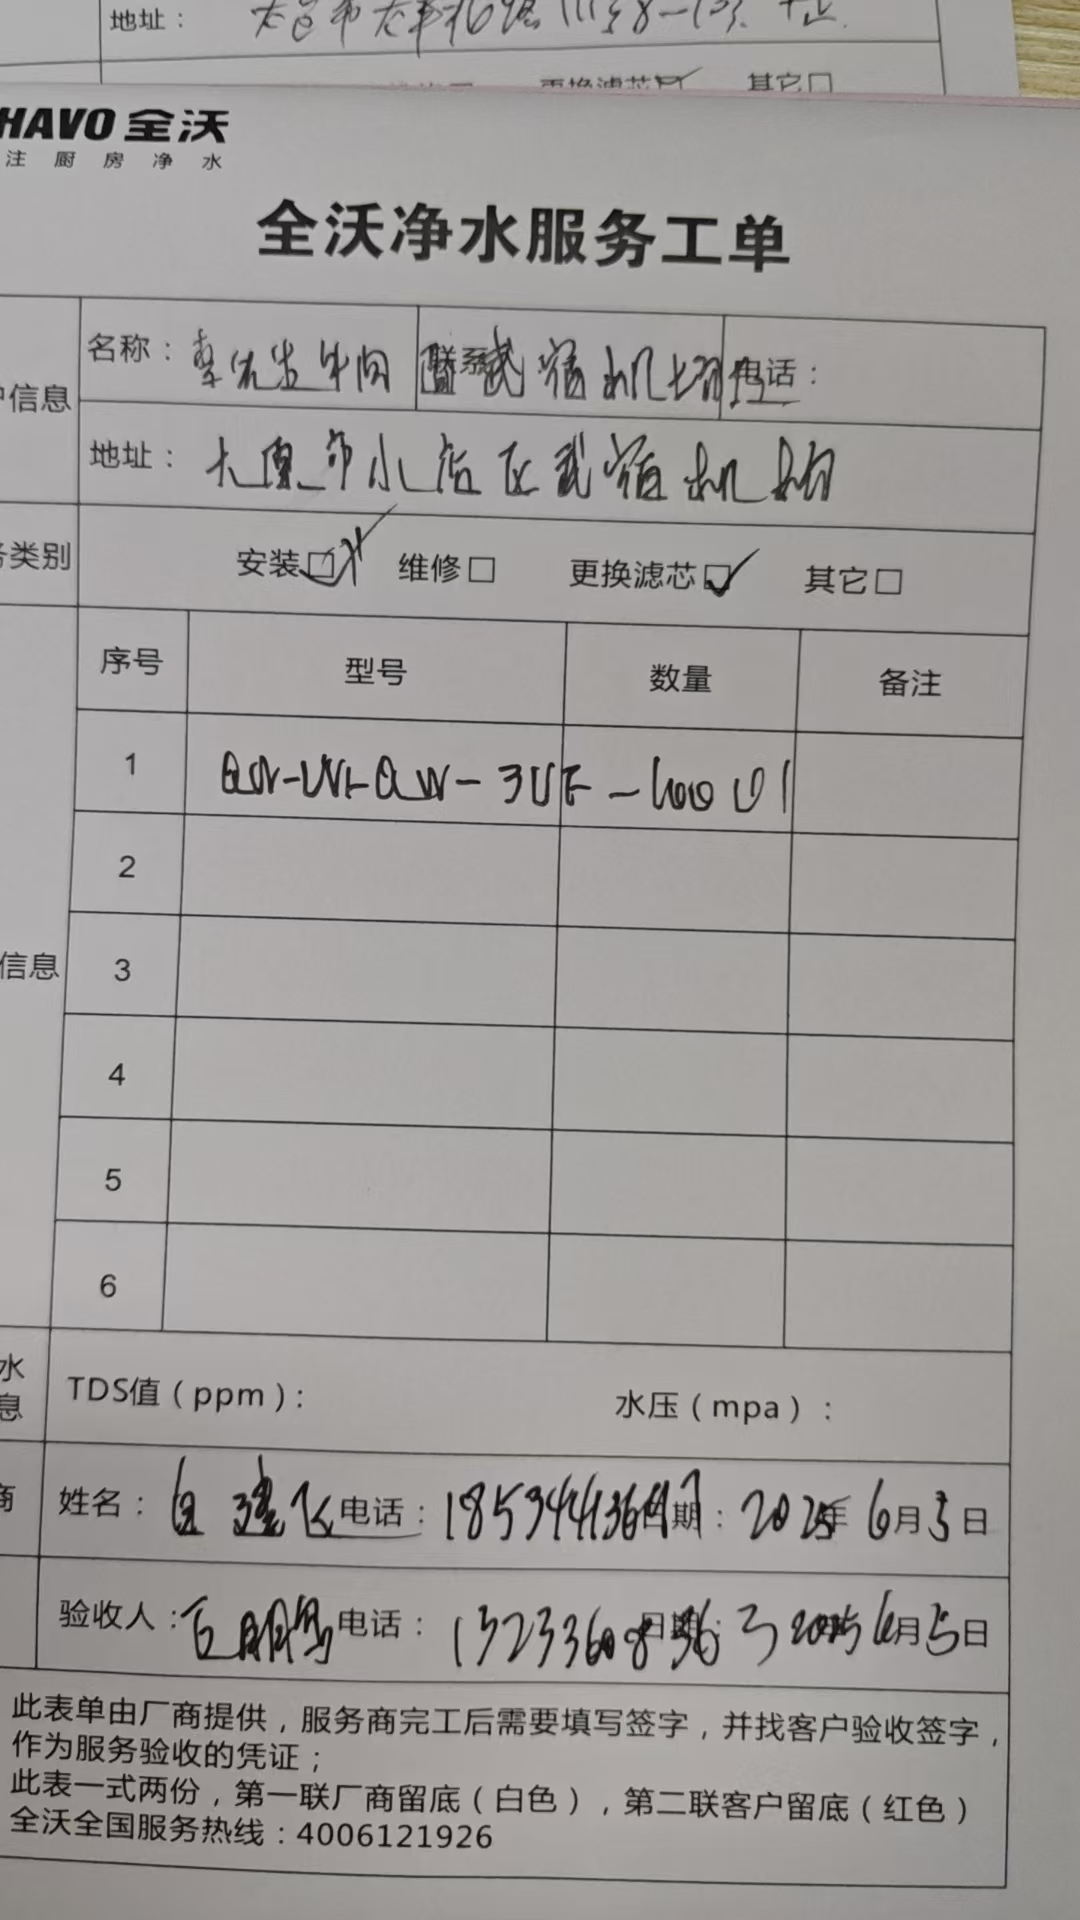 地址：
更换滤芯☑ 其它□
HAVO 全沃
注厨房净水
全沃净水服务工单
信息
名称：李先生牛肉 联系 武宿机场店 电话：
地址：太原市小店区武宿机场
类别
安装□ 维修□ 更换滤芯☑ 其它□
序号 型号 数量 备注
1
2
信息
3
4
5
6
水
息
TDS值（ppm）： 水压（mpa）：
商
姓名：白建飞 电话： 日期：2025年6月5日
验收人： 电话： 日期：2025 6月5日
此表单由厂商提供，服务商完工后需要填写签字，并找客户验收签字，
作为服务验收的凭证；
此表一式两份，第一联厂商留底（白色），第二联客户留底（红色）
全沃全国服务热线：4006121926